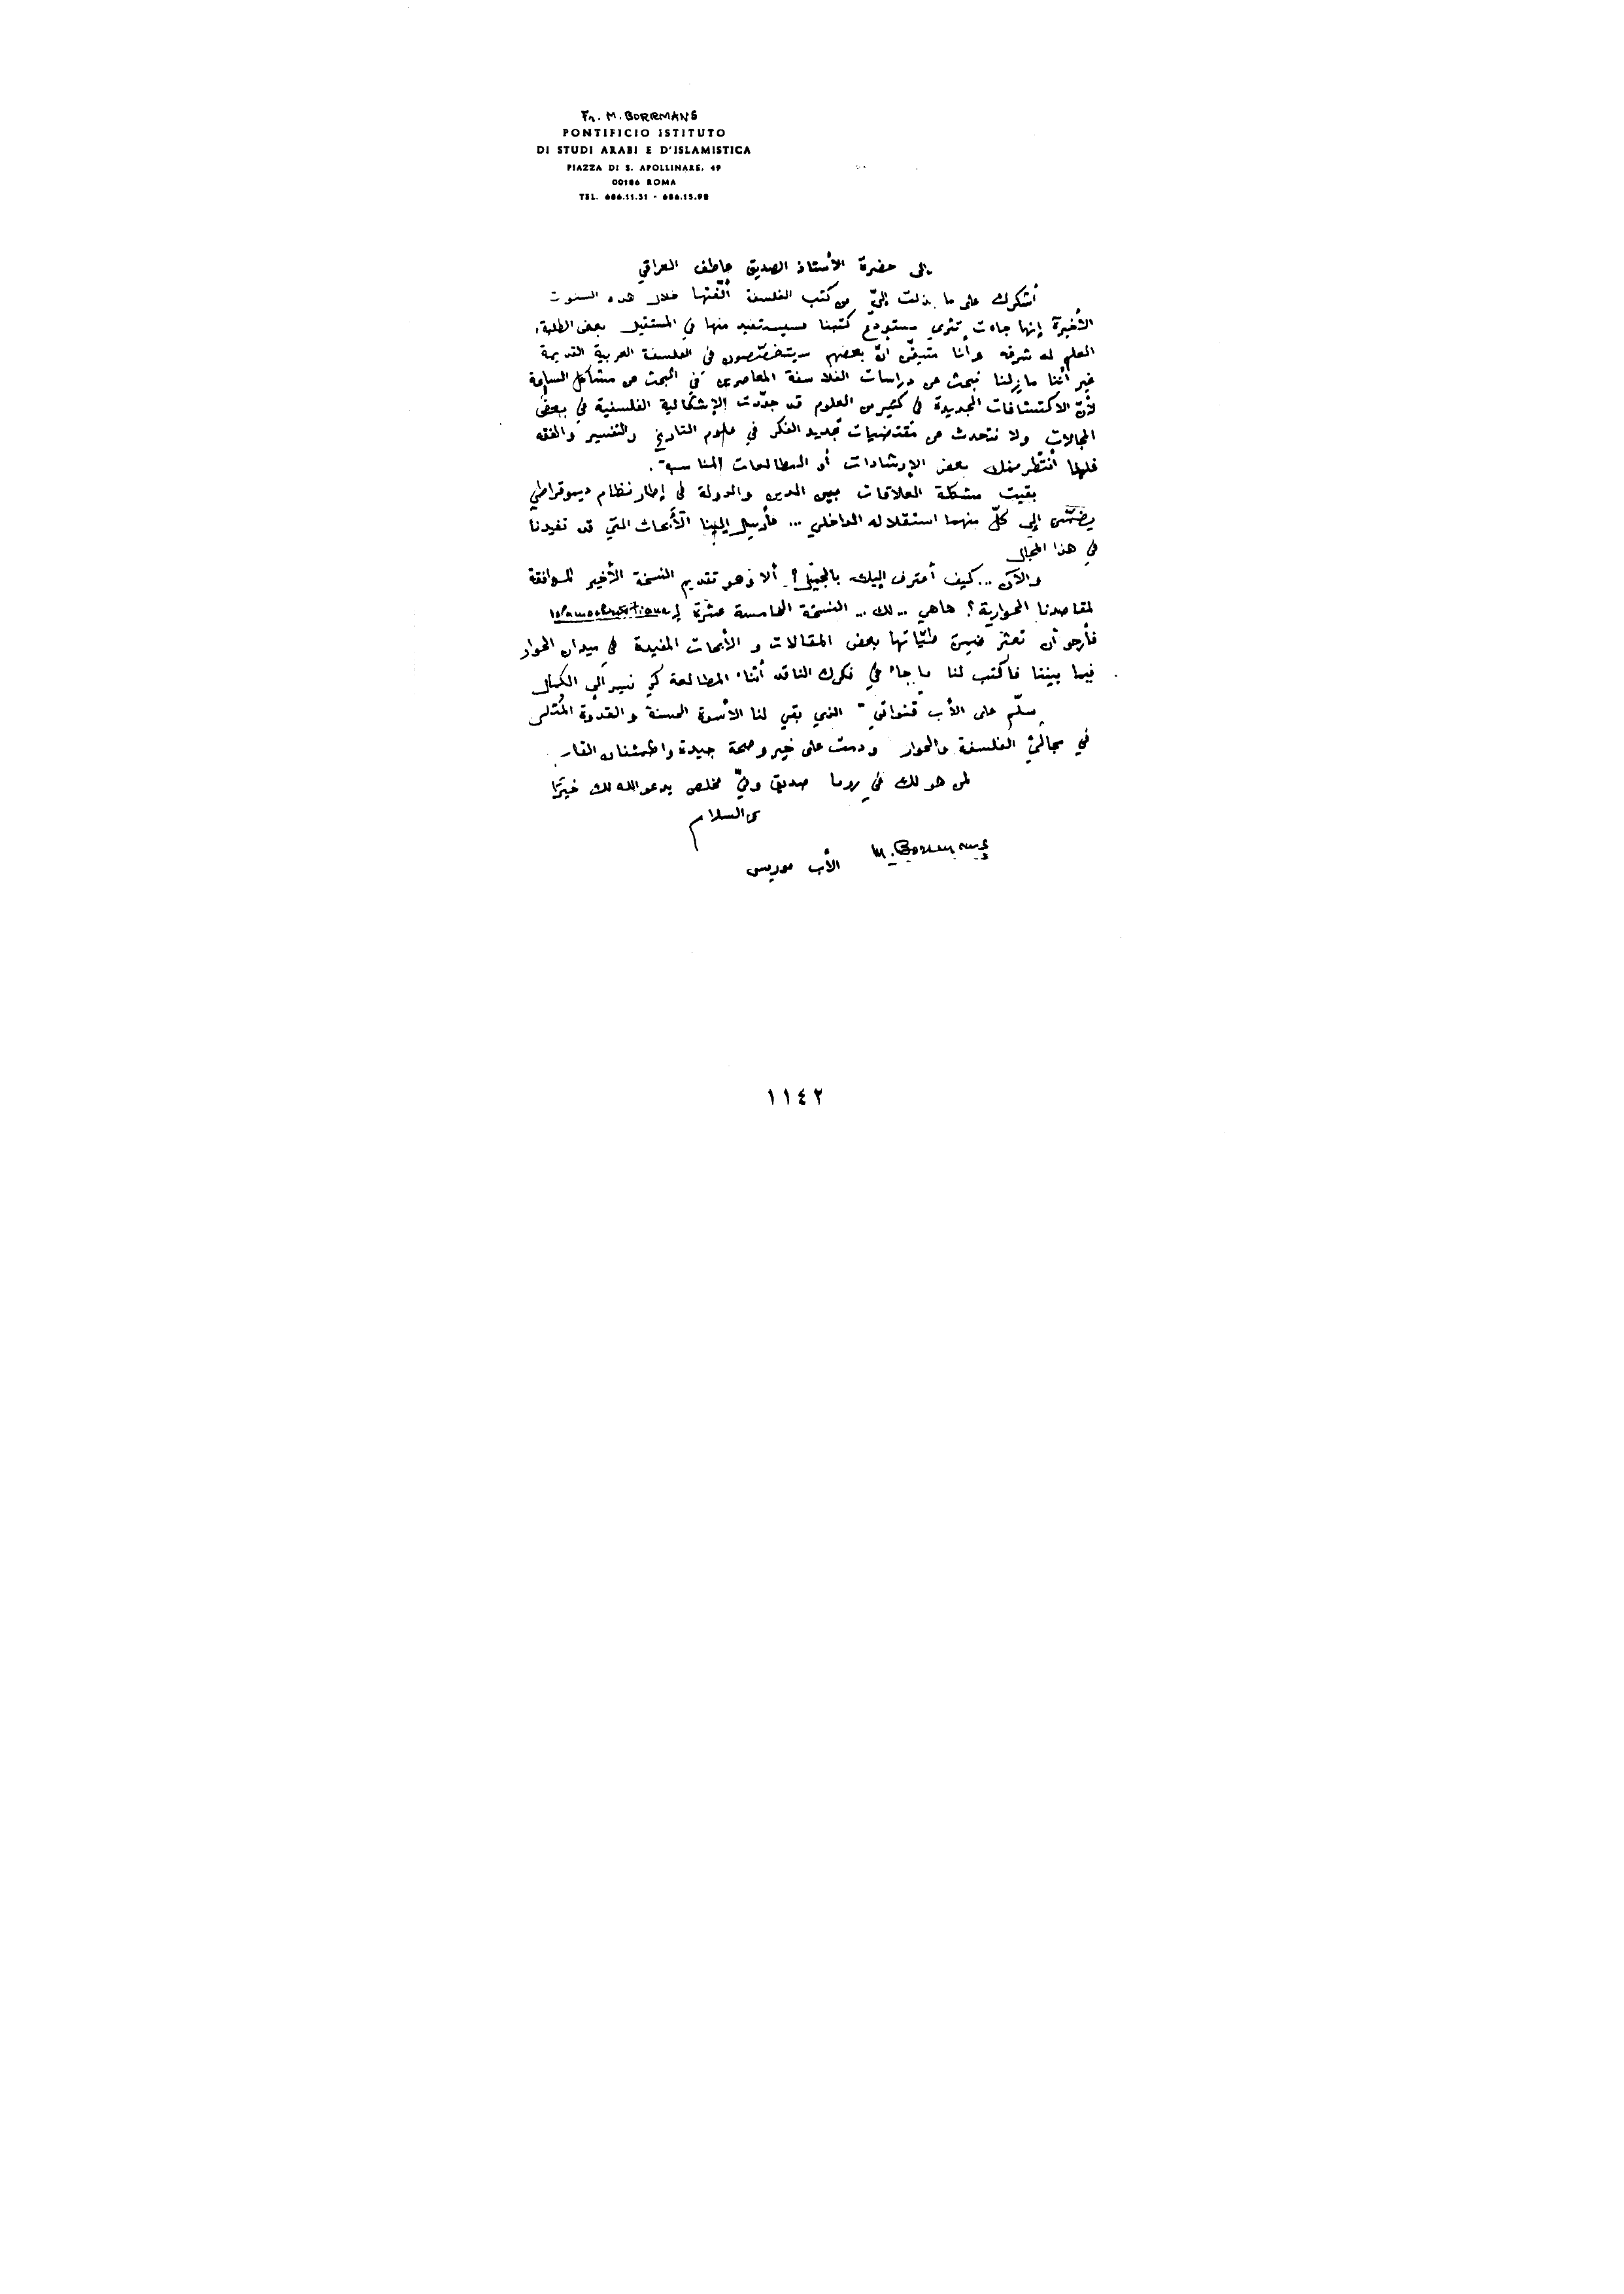 Fr. M. BORRMANS
PONTIFICIO ISTITUTO
DI STUDI ARABI E D'ISLAMISTICA
PIAZZA DI S. APOLLINARE, 49
00186 ROMA
TEL. 686.11.31 - 686.15.98
إلى حضرة الأستاذ الصديق عاطف العراقي
أشكرك على ما بذلت إليّ من كتب الفلسفة ألّفتها خلال هذه السنوات
الأخيرة إنها جاءت تثري مستودع كتبنا فسيستفيد منها في المستقبل بعض الطلبة،
العلم له شرفه وأنا متيقّن انّ بعضهم سيتخصّصون في الفلسفة العربية القديمة
غير أننا مازلنا نبحث عن دراسات الفلاسفة المعاصرين في البحث عن مشاكل الساعة
لأنّ الاكتشافات الجديدة في كثير من العلوم قد جدّدت الإشكالية الفلسفية في بعض
المجالات ولا نتحدث عن مقتضيات تجديد الفكر في علوم التاريخ والتفسير والفقه
فلهذا أنتظر منك بعض الإرشادات أو المطالعات المناسبة.
بقيت مشكلة العلاقات بين الدين والدولة في إطار نظام ديموقراطي
يضمّن إلى كلّ منهما استقلاله الداخلي ... فأرسل إلينا الأبحاث التي قد تفيدنا
في هذا المجال
والآن ... كيف أعترف إليك بالجميل؟ ألا وهو تقديم النسخة الأخير الموافقة
لمقاصدنا الحوارية؟ هاهي .. لك .. النسخة الخامسة عشرة لـ Islamochristiana
فأرجو أن تعثر ضمن طيّاتها بعض المقالات و الأبحاث المفيدة في ميدان الحوار
فيما بيننا فاكتب لنا ما جاء في فكرك الناقد أثناء المطالعة كي نسير الى الكمال
سلّم على الأب قنواتي الذي بقي لنا الأسوة الحسنة والقدوة المُثلى
في مجاليْ الفلسفة والحوار ودمت على خير وصحة جيدة واطمئنان
لمن هو لك في روما صديق وفيّ مخلص يدعو الله لك خيرًا
والسلام
M. Borrmans
الأب موريس
١١٤٢